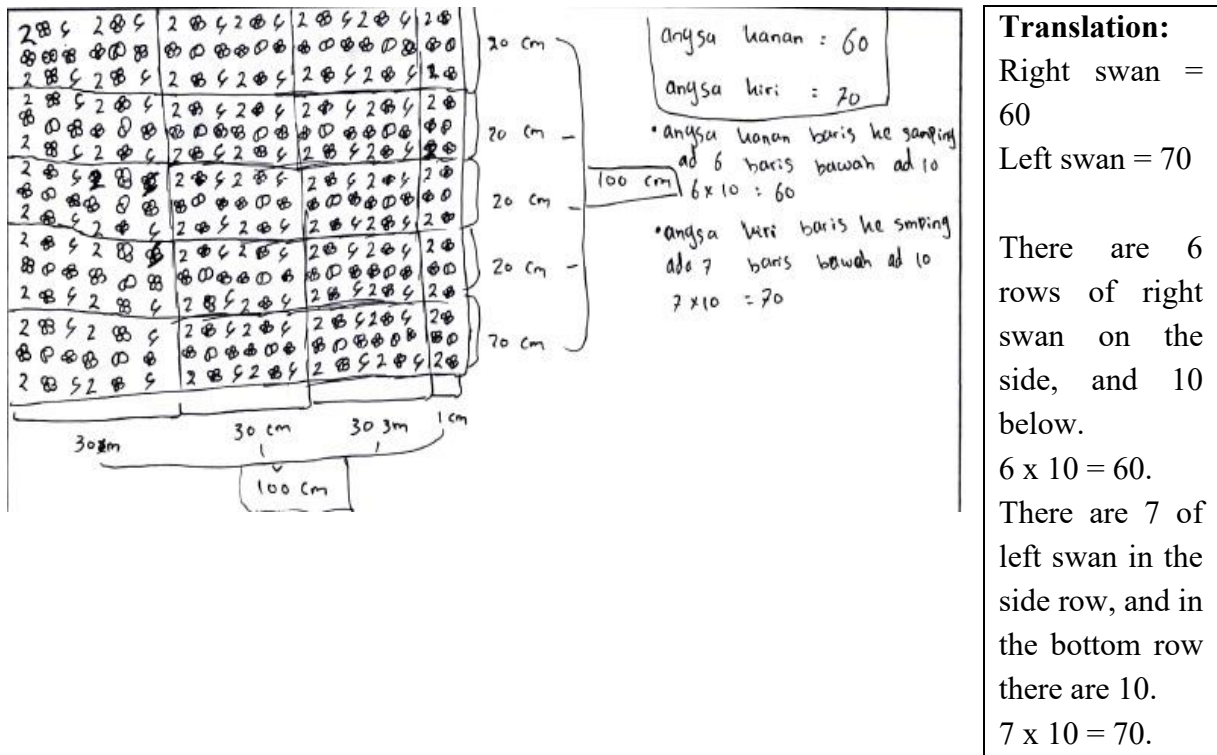 20 cm
20 cm
20 cm
20 cm
20 cm
100 cm
30 cm
30 cm
30 3m
1 cm
100 cm
angsa kanan : 60
angsa kiri : 70
•angsa kanan baris ke samping
ad 6 baris bawah ad 10
6 x 10 : 60
•angsa kiri baris ke smping
ada 7 baris bawah ad 10
7 x 10 = 70
Translation:
Right swan =
60
Left swan = 70
There are 6
rows of right
swan on the
side, and 10
below.
6 x 10 = 60.
There are 7 of
left swan in the
side row, and in
the bottom row
there are 10.
7 x 10 = 70.